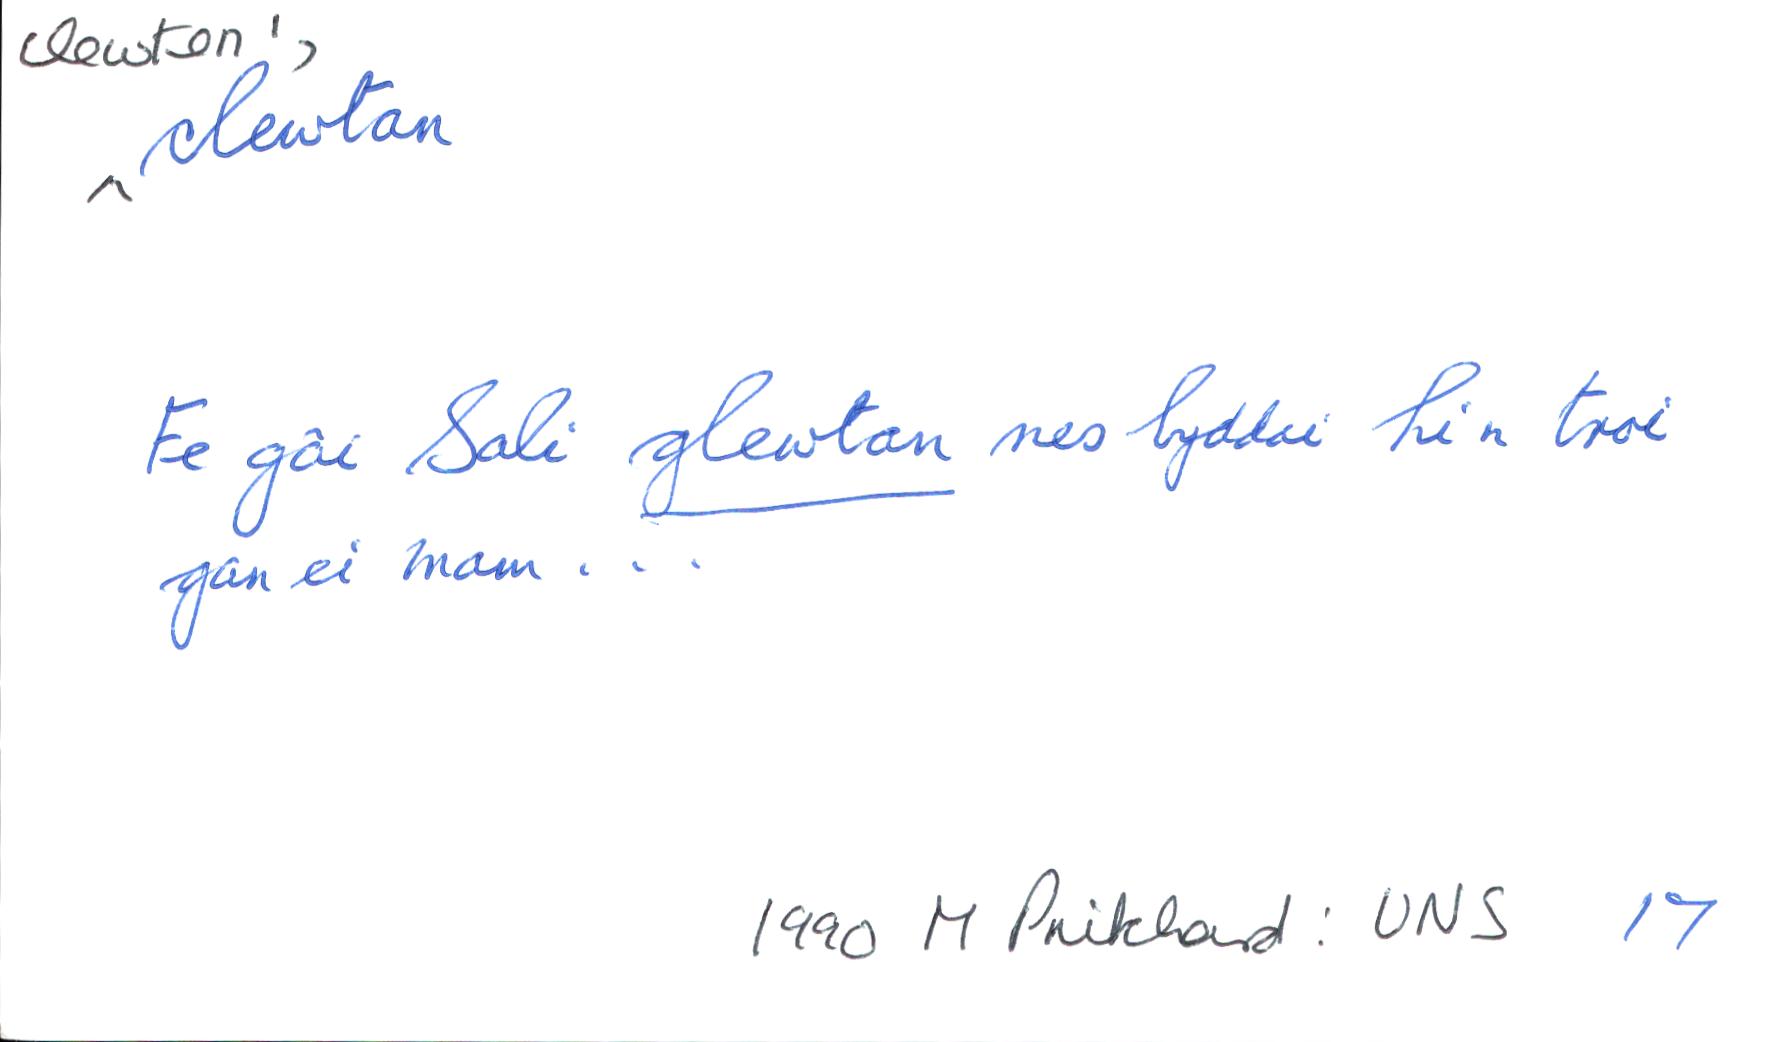 clewten¹,
^ clewtan
Fe gâi Sali glewtan nes byddai hi'n troi
gan ei mam . . .
1990 M Pritchard: UNS 17